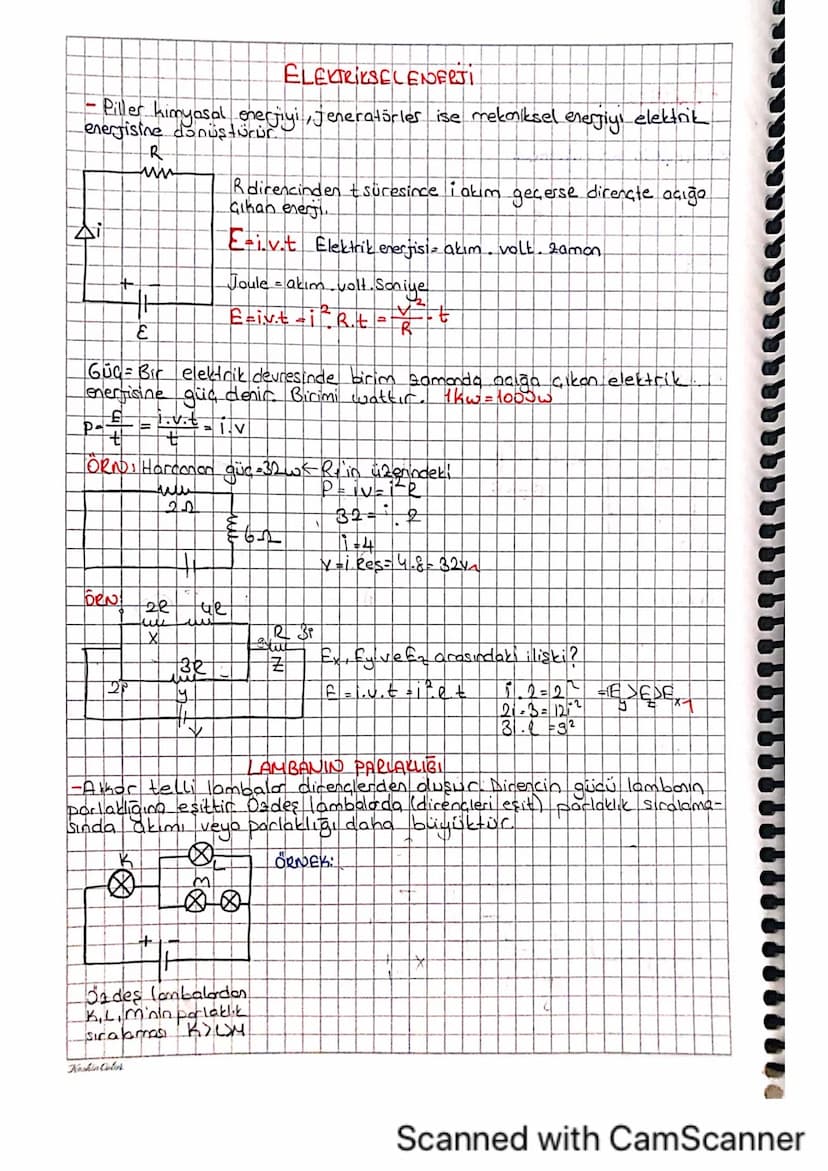 ELEKTRİKSEL ENERJİ
- Piller kimyasal enerjiyi, jeneratörler ise mekaniksel enerjiyi elektrik
enerjisine dönüştürür.
R
i
+ -
ε
R direncinden t süresince i akım geçerse dirençte açığa
çıkan enerji.
E=i.v.t Elektrik enerjisi= akım . volt . zaman
Joule = akım . volt . Saniye
E=i.v.t = i².R.t = V²/R . t
Güç= Bir elektrik devresinde birim zamanda açığa çıkan elektrik
enerjisine güç denir. Birimi wattır. 1kw=1000w
P= E/t = i.v.t/t = i.v
ÖRN: Harcanan güç=32w ← R₁'in üzerindeki
2Ω
6Ω
P= iv= i²R
32= i². 2
i=4
V=i.Reş= 4.8= 32v
ÖRN:
2R 4R
X
R 3i
Z
3R
y
2i
V
Ex, Ey ve Ez arasındaki ilişki?
E=i.v.t =i².R.t
i.2=2²
2i.3=12i²
3i.R=9²
=Ey>Ez>Ex
LAMBANIN PARLAKLIĞI
-Akkor telli lambalar dirençlerden oluşur. Direncin gücü lambanın
parlaklığına eşittir. Özdeş lambalarda (dirençleri eşit) parlaklık sıralama-
sında akımı veya parlaklığı daha büyüktür.
K
L
M
+ -
ÖRNEK:
Özdeş lambalardan
K,L,M'nin parlaklık
sıralaması K>L>M
Scanned with CamScanner